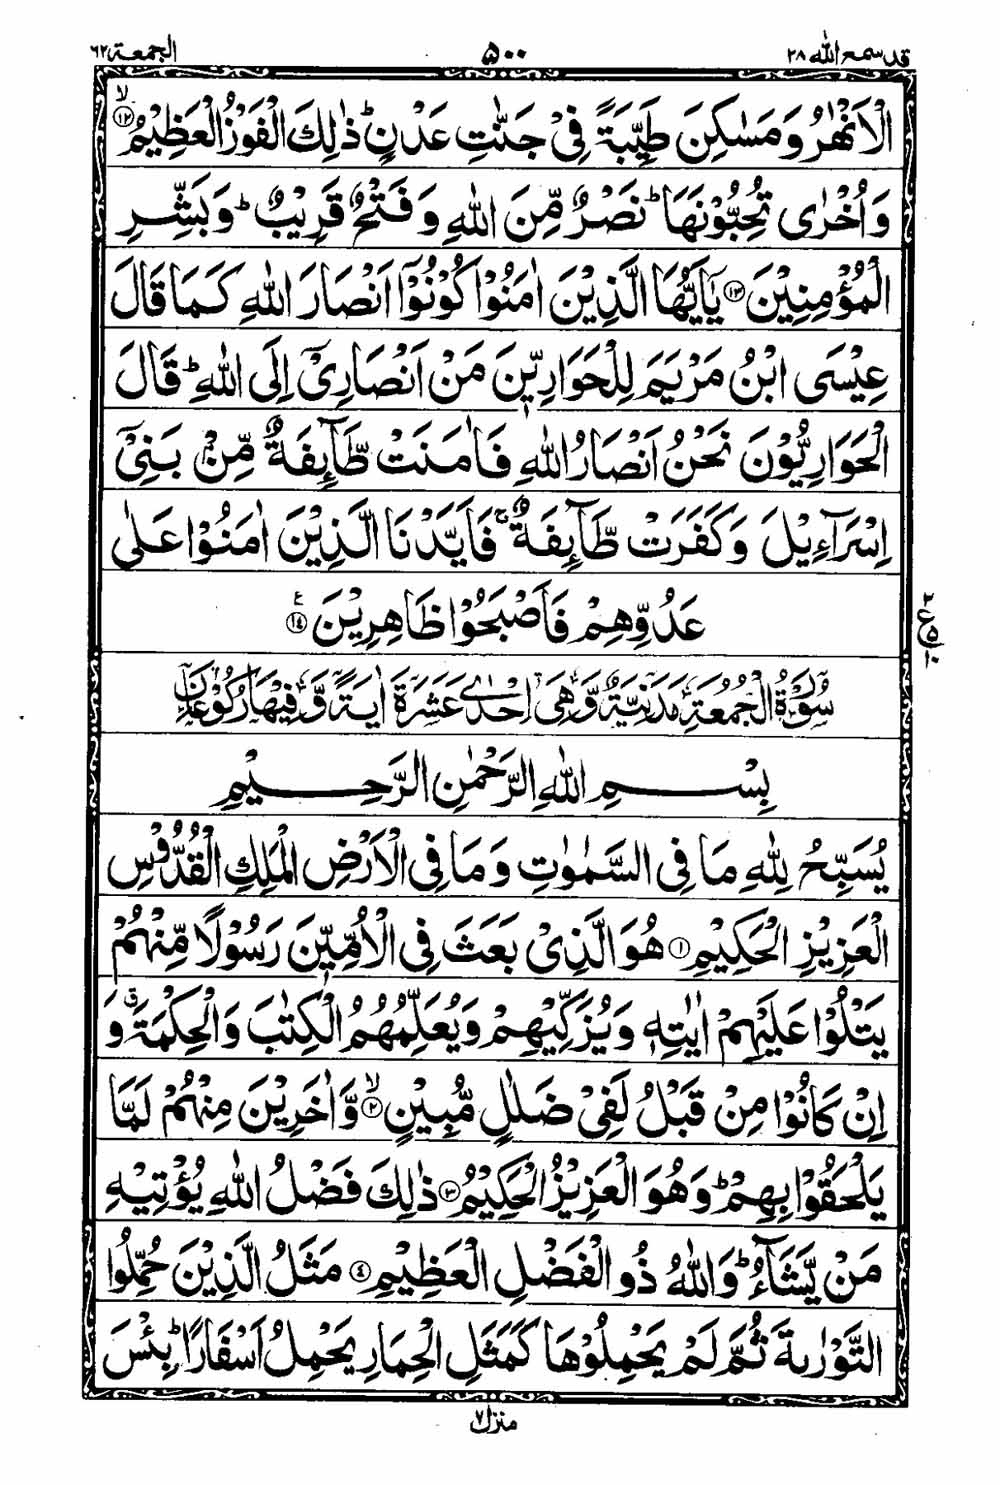 قد سمع الله ٢٨ ۵۰۰ الجمعة ٦٢
الْاَنْهٰرُ وَمَسٰكِنَ طَيِّبَةً فِىْ جَنّٰتِ عَدْنٍ ؕ ذٰلِكَ الْفَوْزُ الْعَظِيْمُ ۙ‏﴿۱۲﴾
وَاُخْرٰى تُحِبُّوْنَهَا ؕ نَصْرٌ مِّنَ اللّٰهِ وَفَتْحٌ قَرِيْبٌ ؕ وَبَشِّرِ
الْمُؤْمِنِيْنَ ﴿۱۳﴾ يٰۤاَيُّهَا الَّذِيْنَ اٰمَنُوْا كُوْنُوْۤا اَنْصَارَ اللّٰهِ كَمَا قَالَ
عِيْسَى ابْنُ مَرْيَمَ لِلْحَوَارِيّٖنَ مَنْ اَنْصَارِىْۤ اِلَى اللّٰهِ ؕ قَالَ
الْحَوَارِيُّوْنَ نَحْنُ اَنْصَارُ اللّٰهِ فَاٰمَنَتْ طَّآئِفَةٌ مِّنْۢ بَنِىْۤ
اِسْرَآءِيْلَ وَكَفَرَتْ طَّآئِفَةٌ ۚ فَاَيَّدْنَا الَّذِيْنَ اٰمَنُوْا عَلٰى
عَدُوِّهِمْ فَاَصْبَحُوْا ظَاهِرِيْنَ ﴿۱۴﴾ ع
سُوْرَةُ الْجُمُعَةِ مَدَنِيَّةٌ وَّهِىَ اِحْدٰى عَشَرَةَ اٰيَةً وَّفِيْهَا رُكُوْعَانِ
بِسْمِ اللّٰهِ الرَّحْمٰنِ الرَّحِيْمِ
يُسَبِّحُ لِلّٰهِ مَا فِى السَّمٰوٰتِ وَمَا فِى الْاَرْضِ الْمَلِكِ الْقُدُّوْسِ
الْعَزِيْزِ الْحَكِيْمِ ﴿۱﴾ هُوَ الَّذِىْ بَعَثَ فِى الْاُمِّيّٖنَ رَسُوْلًا مِّنْهُمْ
يَتْلُوْا عَلَيْهِمْ اٰيٰتِهٖ وَيُزَكِّيْهِمْ وَيُعَلِّمُهُمُ الْكِتٰبَ وَالْحِكْمَةَ ۗ وَ
اِنْ كَانُوْا مِنْ قَبْلُ لَفِىْ ضَلٰلٍ مُّبِيْنٍ ۙ﴿۲﴾ وَّاٰخَرِيْنَ مِنْهُمْ لَمَّا
يَلْحَقُوْا بِهِمْ ؕ وَهُوَ الْعَزِيْزُ الْحَكِيْمُ ﴿۳﴾ ذٰلِكَ فَضْلُ اللّٰهِ يُؤْتِيْهِ
مَنْ يَّشَآءُ ؕ وَاللّٰهُ ذُو الْفَضْلِ الْعَظِيْمِ ﴿۴﴾ مَثَلُ الَّذِيْنَ حُمِّلُوا
التَّوْرٰىةَ ثُمَّ لَمْ يَحْمِلُوْهَا كَمَثَلِ الْحِمَارِ يَحْمِلُ اَسْفَارًا ؕ بِئْسَ
منزل ۷